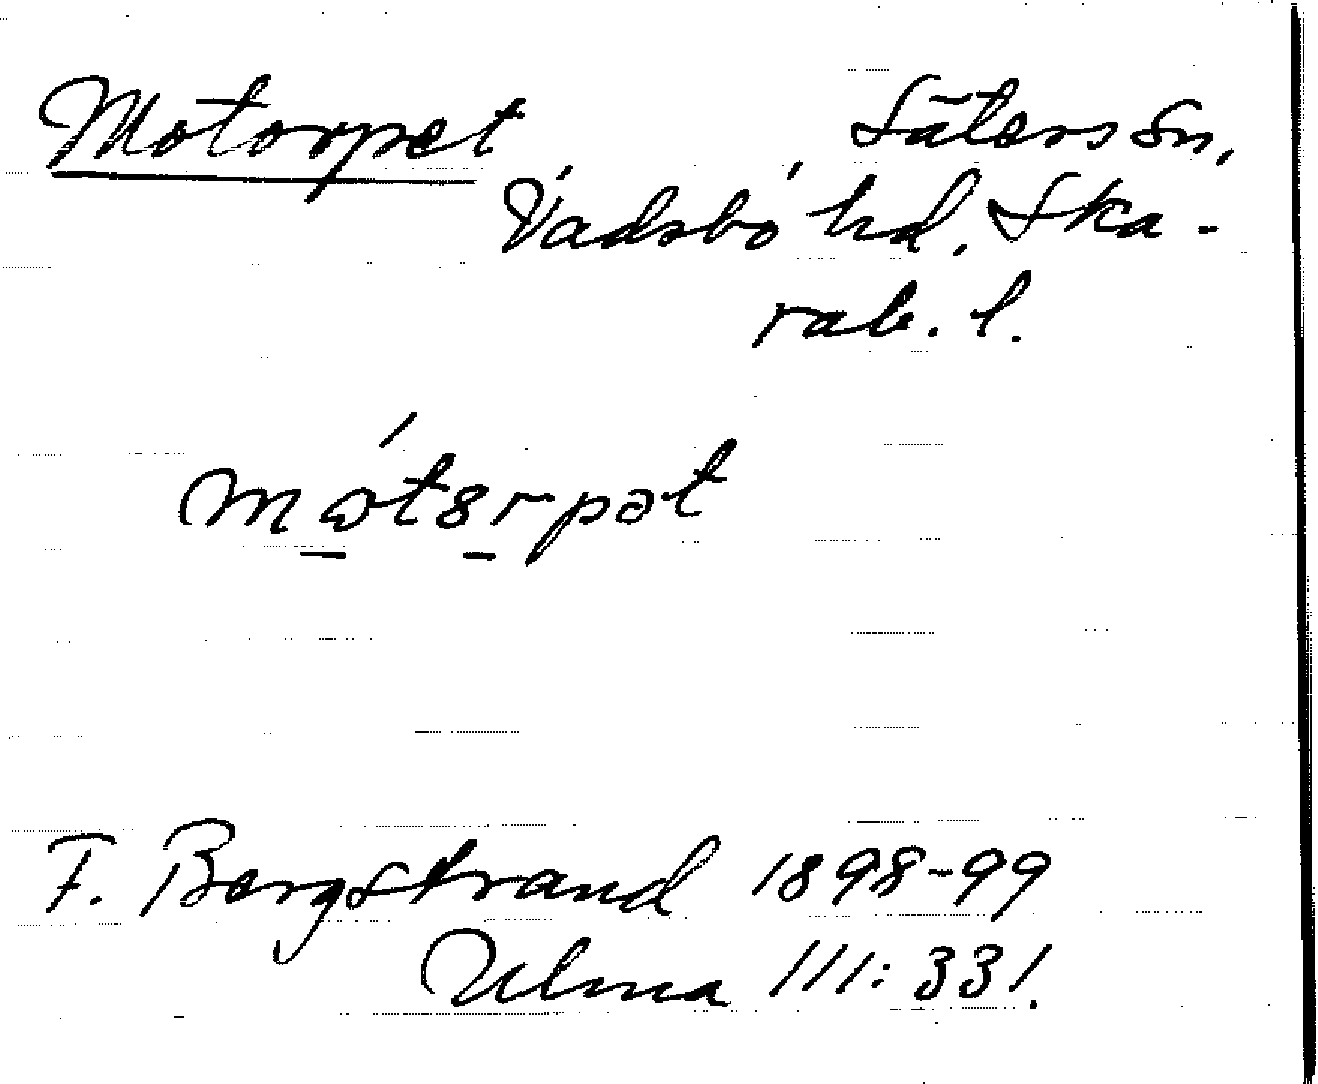 Motorpet Säters Sn,
Vadsbo hd, Ska-
rab. l.
mωt8rpət
F. Bergstrand 1898-99
Ulma 111:331.